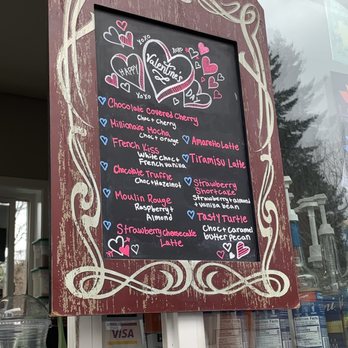 XOXO
XOXO
HAPPY
Valentine's
DAY
XOXO
Chocolate Covered Cherry
Choc + Cherry
Millionaire Mocha
Choc + Orange
French Kiss
White Choc +
French Vanilla
Chocolate Truffle
Choc + Hazelnut
Moulin Rouge
Raspberry +
Almond
Strawberry Cheesecake
Latte
Amaretto Latte
Tiramisu Latte
Strawberry
Shortcake
Strawberry + Almond
+ Vanilla bean
Tasty Turtle
Choc + Caramel
butter pecan
VISA